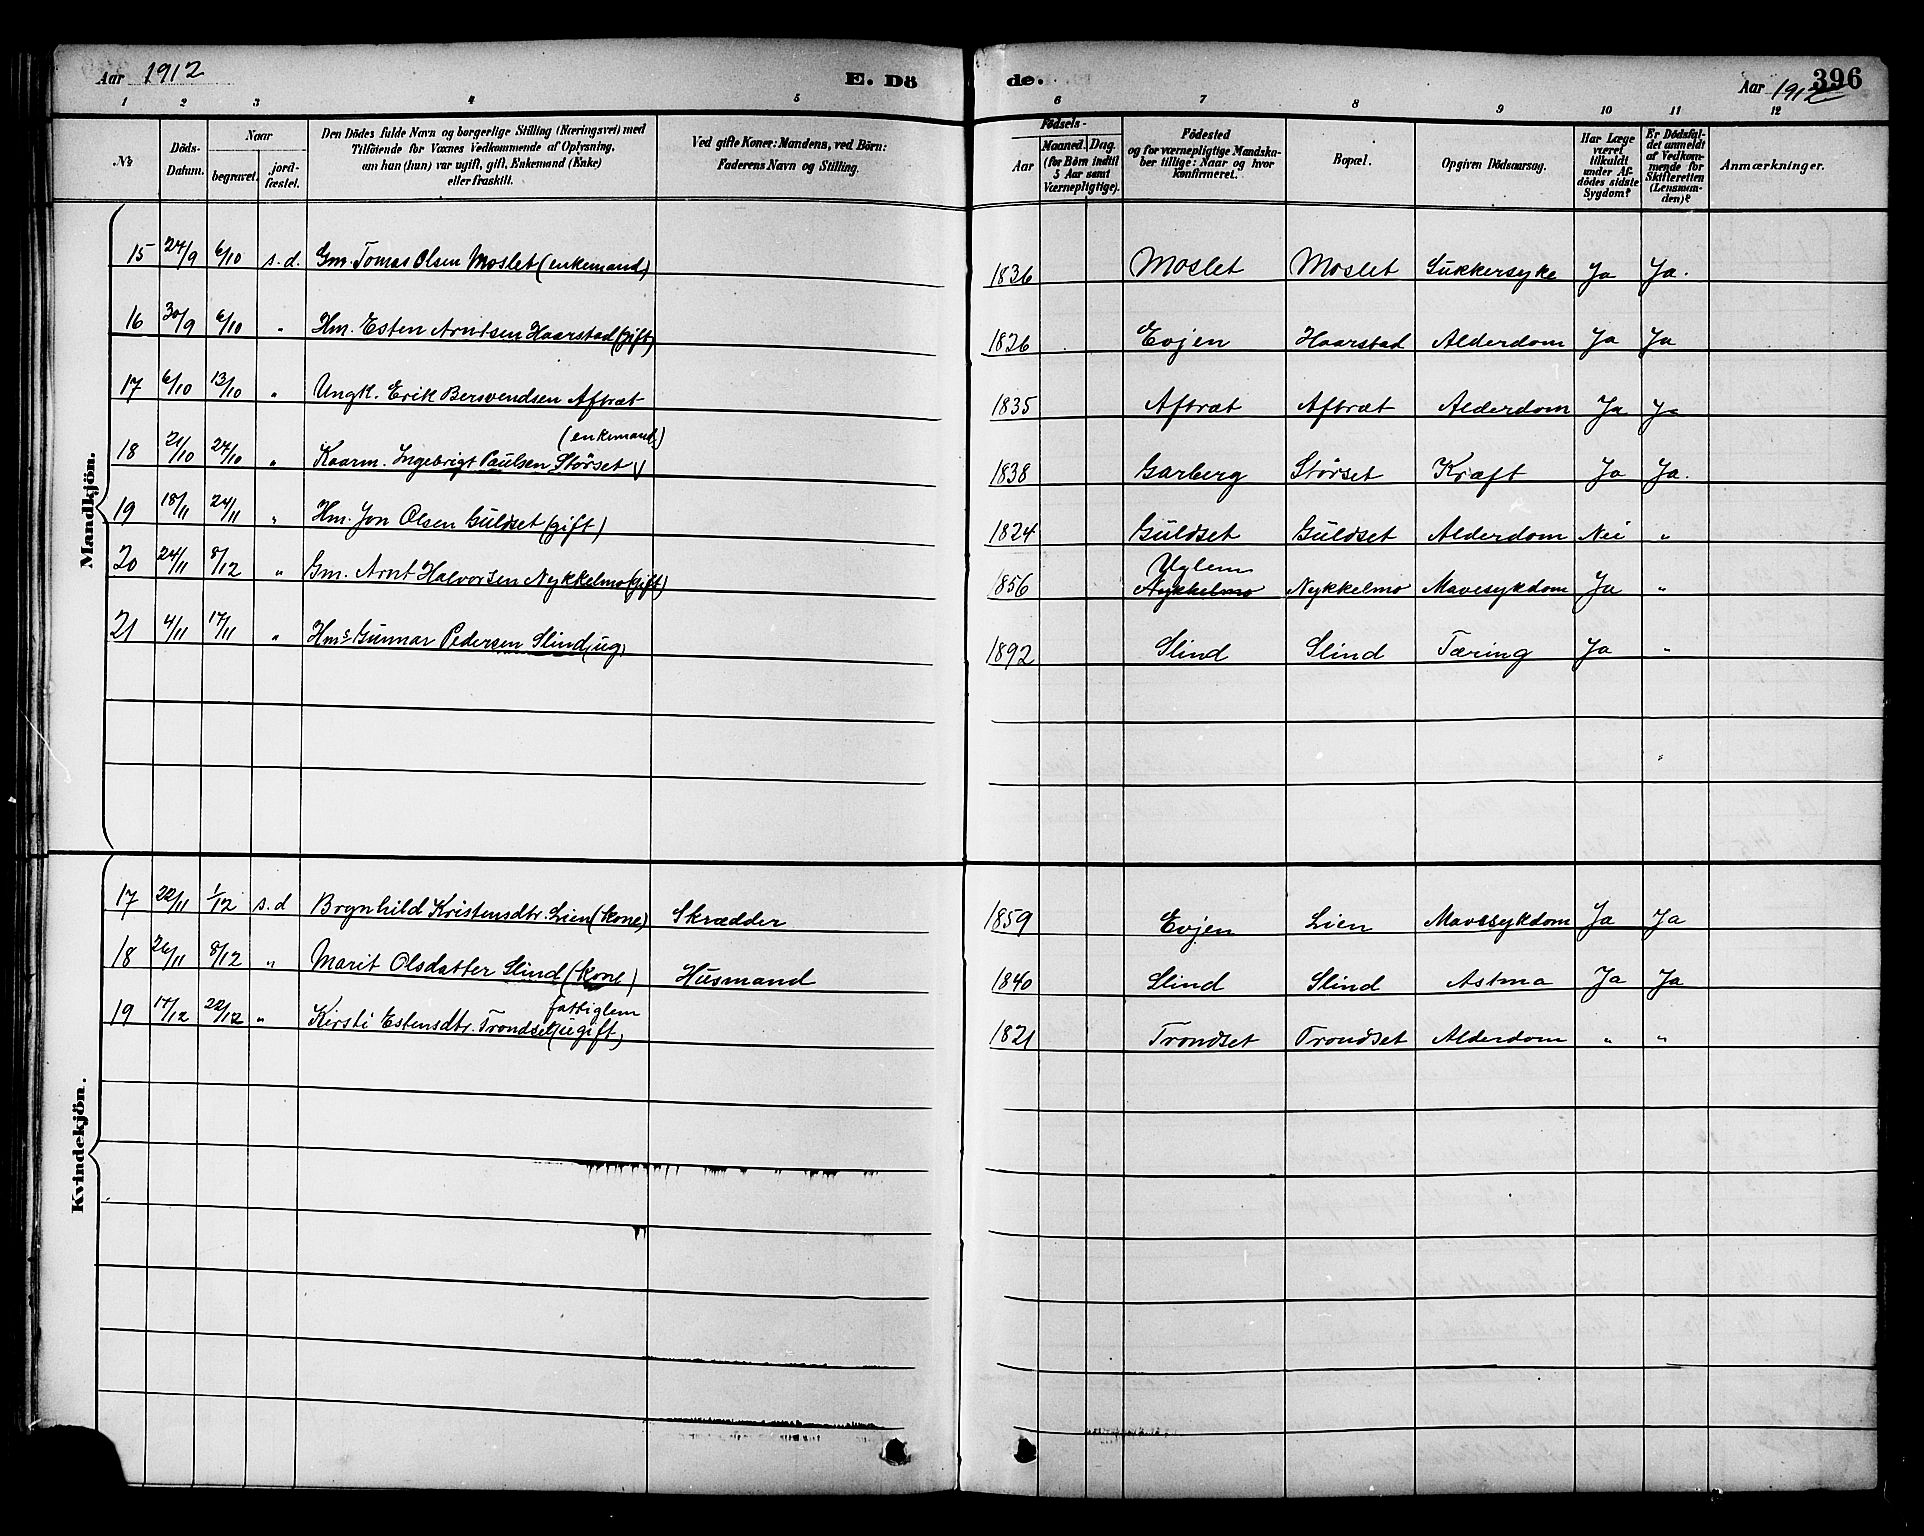 Aar 1912 E. Dö de. Aar 1912 396
1 2 3 4 5 6 7 8 9 10 11 12
No
Döds-Datum.
Naar
begravet. jord-fæstet.
Den Dödes fulde Navn og borgerlige Stilling (Næringsvei) med
Tilföiende for Voxnes Vedkommende af Oplysning,
om han (hun) var ugift, gift, Enkemand (Enke)
eller fraskilt.
Ved gifte Koner: Mandens, ved Börn:
Faderens Navn og Stilling.
Födsels-
Aar
Maaned. Dag.
(for Börn indtil
5 Aar samt
Værnepligtige).
Födested
og for værnepligtige Mandska-
ber tillige: Naar og hvor
konfirmeret.
Bopæl.
Opgiven Dödsaarsag.
Har Læge
været
tilkaldt
under Af-
dödes sidste
Sygdom?
Er Dödsfal-
det anmeldt
af Vedkom-
mende for
Skifteretten
(Lensman-
den)?
Anmærkninger.
Mandkjön.
15 24/9 6/10 s.d. Gm. Tomas Olsen Moslet (enkemand) 1836 Moslet Moslet Sukkersyke Ja Ja.
16 30/9 6/10 " Hm. Esten Arntsen Haarstad (gift) 1826 Evjen Haarstad Alderdom Ja Ja
17 6/10 13/10 " Ungk. Erik Bersvendsen Aftræt 1835 Aftræt Aftræt Alderdom Ja Ja
(enkemand)
18 21/10 27/10 " Kaarm. Ingebrigt Paulsen Størset 1838 Garberg Størset Kræft Ja Ja.
19 18/11 24/11 " Hm. Jon Olsen Guldset (gift) 1824 Guldset Guldset Alderdom Nei "
Uglem
20 24/11 8/12 " Gm. Arnt Halvorsen Nykkelmo (gift) 1856 Nykkelmo Nykkelmo Mavesykdom Ja "
21 4/11 17/11 " Hms Gunnar Pedersen Slind (ug. 1892 Slind Slind Tæring Ja "
Kvindekjön.
17 22/11 1/12 s.d Brynhild Kristensdtr. Lien (kone) Skrædder 1859 Evjen Lien Mavesykdom Ja Ja
18 26/11 8/12 " Marit Olsdatter Slind (kone) Husmand 1840 Slind Slind Astma Ja Ja
fattiglem
19 17/12 22/12 " Kirsti Estensdtr. Trondset (ugift) 1821 Trondset Trondset Alderdom " "